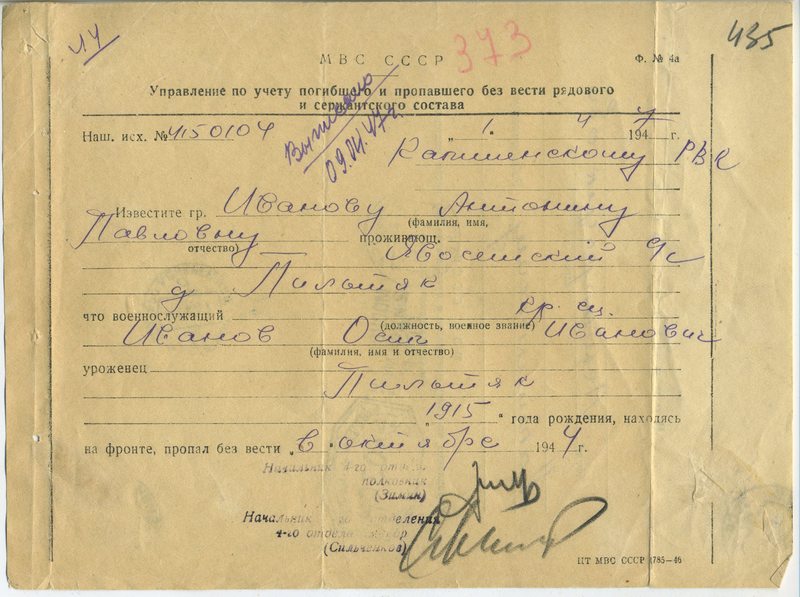 44
МВС СССР
373
Ф. № 4а
435
Управление по учету погибшего и пропавшего без вести рядового
и сержантского состава
Выписано
09.04.47г.
Наш. исх. № 4150104 „1“ 4 1947 г.
РВК
Известите гр. Иванову Антонину
(фамилия, имя,
Павловну проживающ.
отчество)
д. Пильтяк
что военнослужащий кр-ец.
(должность, военное звание)
Иванов Осип Иванович
(фамилия, имя и отчество)
уроженец
Пильтяк
„1915“ года рождения, находясь
на фронте, пропал без вести „в“ октябре 1944 г.
Начальник 4-го отдела
полковник
(Зимин)
Начальник отделения
4-го отдела майор
(Сильченков)
ЦТ МВС СССР 1785—46